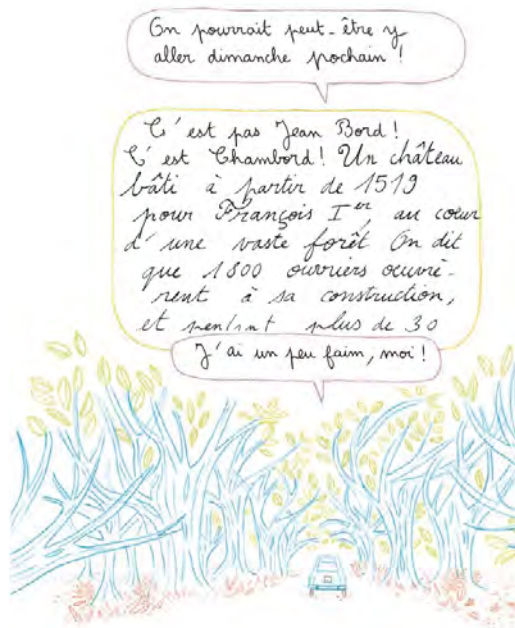 On pourrait peut-être y
aller dimanche pochain !
C'est pas Jean Bord !
C'est Chambord ! Un château
bâti à partir de 1519
pour François Ier, au cœur
d'une vaste forêt On dit
que 1800 ouvriers œuvrè-
rent à sa construction,
et pendant plus de 30
J'ai un peu faim, moi !